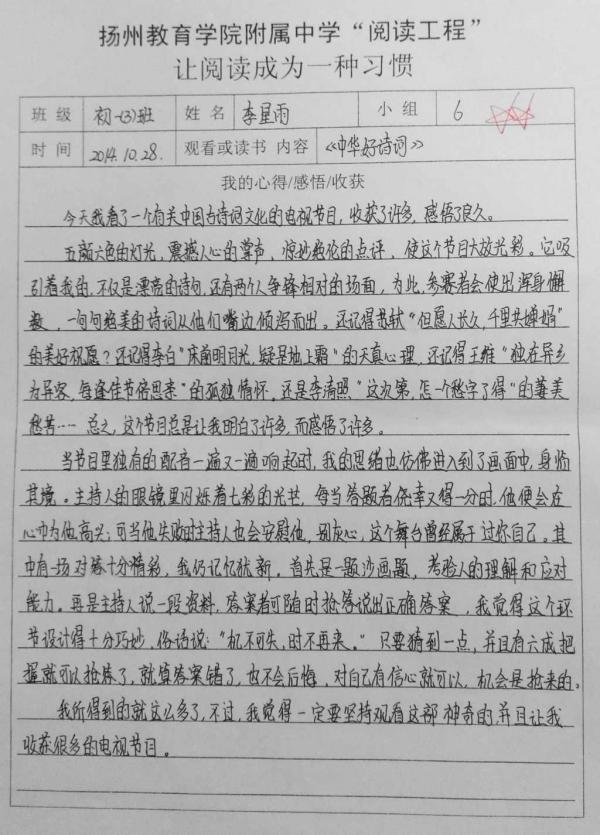 扬州教育学院附属中学“阅读工程”
让阅读成为一种习惯
班级 初一(3)班 姓名 李星雨 小组 6
时间 2014.10.28. 观看或读书 内容 《中华好诗词》
我的心得/感悟/收获
今天我看了一个有关中国古诗词文化的电视节目,收获了许多,感悟了良久。
五颜六色的灯光,震撼人心的掌声,惊妙绝伦的点评,使这个节目大放光彩。它吸
引着我的,不仅是漂亮的诗句,还有两个人争锋相对的场面,为此,参赛者会使出浑身懈
数,一句句绝美的诗词从他们嘴边倾泻而出。还记得苏轼“但愿人长久,千里共婵娟”
的美好祝愿?还记得李白“床前明月光,疑是地上霜”的天真心理,还记得王维“独在异乡
为异客,每逢佳节倍思亲”的孤独情怀。还是李清照“这次第,怎一个愁字了得”的萋美
愁苦……总之,这个节目总是让我明白了许多,而感悟了许多。
当节目里独有的配音一遍又一遍响起时,我的思绪也仿佛进入到了画面中,身临
其境。主持人的眼镜里闪烁着七彩的光芒,每当答题者侥幸又得一分时,他便会在
心中为他高兴;可当他失败时主持人也会安慰他,别灰心,这个舞台曾经属于过你自己。其
中有一场对练十分精彩,我仍记忆犹新。首先是一题沙画题,考验人的理解和应对
能力。再是主持人说一段资料,答案者可随时抢答说出正确答案,我觉得这个环
节设计得十分巧妙。俗语说:“机不可失,时不再来。”只要猜到一点,并且有六成把
握就可以抢答了,就算答案错了,也不会后悔,对自己有信心就可以,机会是抢来的。
我所得到的就这么多了,不过,我觉得一定要坚持观看这部神奇的,并且让我
收获很多的电视节目。